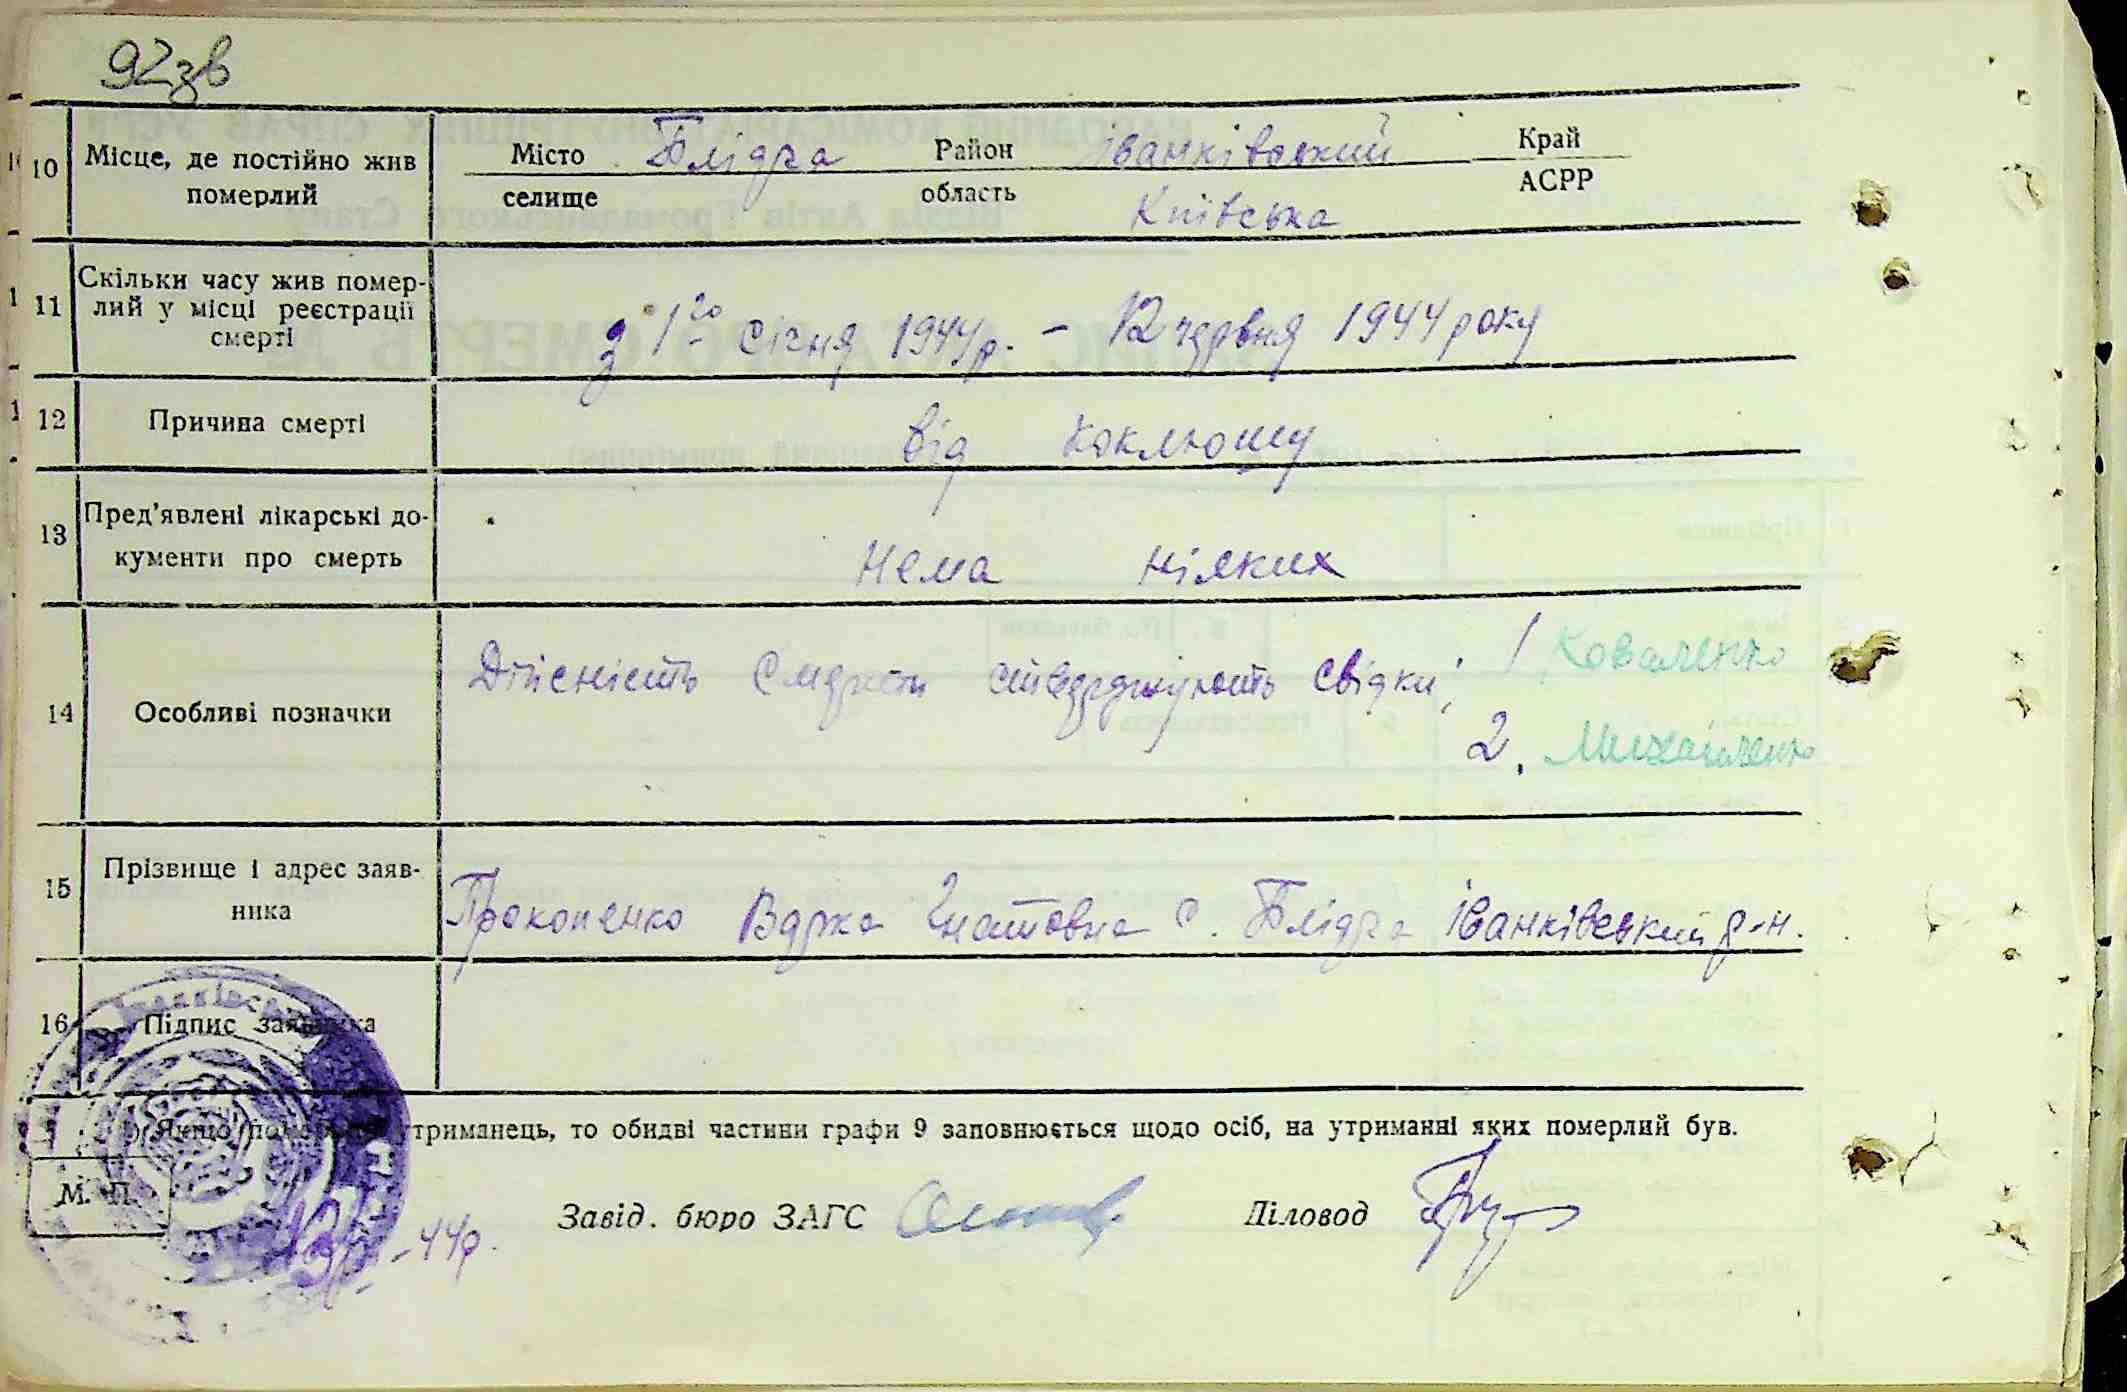 92зв
10 Місце, де постійно жив померлий Місто селище Блідча Район Іванківський область Київська Край АСРР
11 Скільки часу жив померлий у місці реєстрації смерті з 1го січня 1944р. – 12 червня 1944 року
12 Причина смерті від коклюшу
13 Пред'явлені лікарські документи про смерть Нема ніяких
14 Особливі позначки Дійсність смерти стверджують свідки; 1 Коваленко
2. Михайленко
15 Прізвище і адрес заявника Прокопенко Варка Гнатовна с. Блідча Іванківський р-н.
16 Підпис заявника
Якщо утриманець, то обидві частини графи 9 заповнюється щодо осіб, на утриманні яких померлий був.
М. П.
Завід. бюро ЗАГС Діловод
-44р.